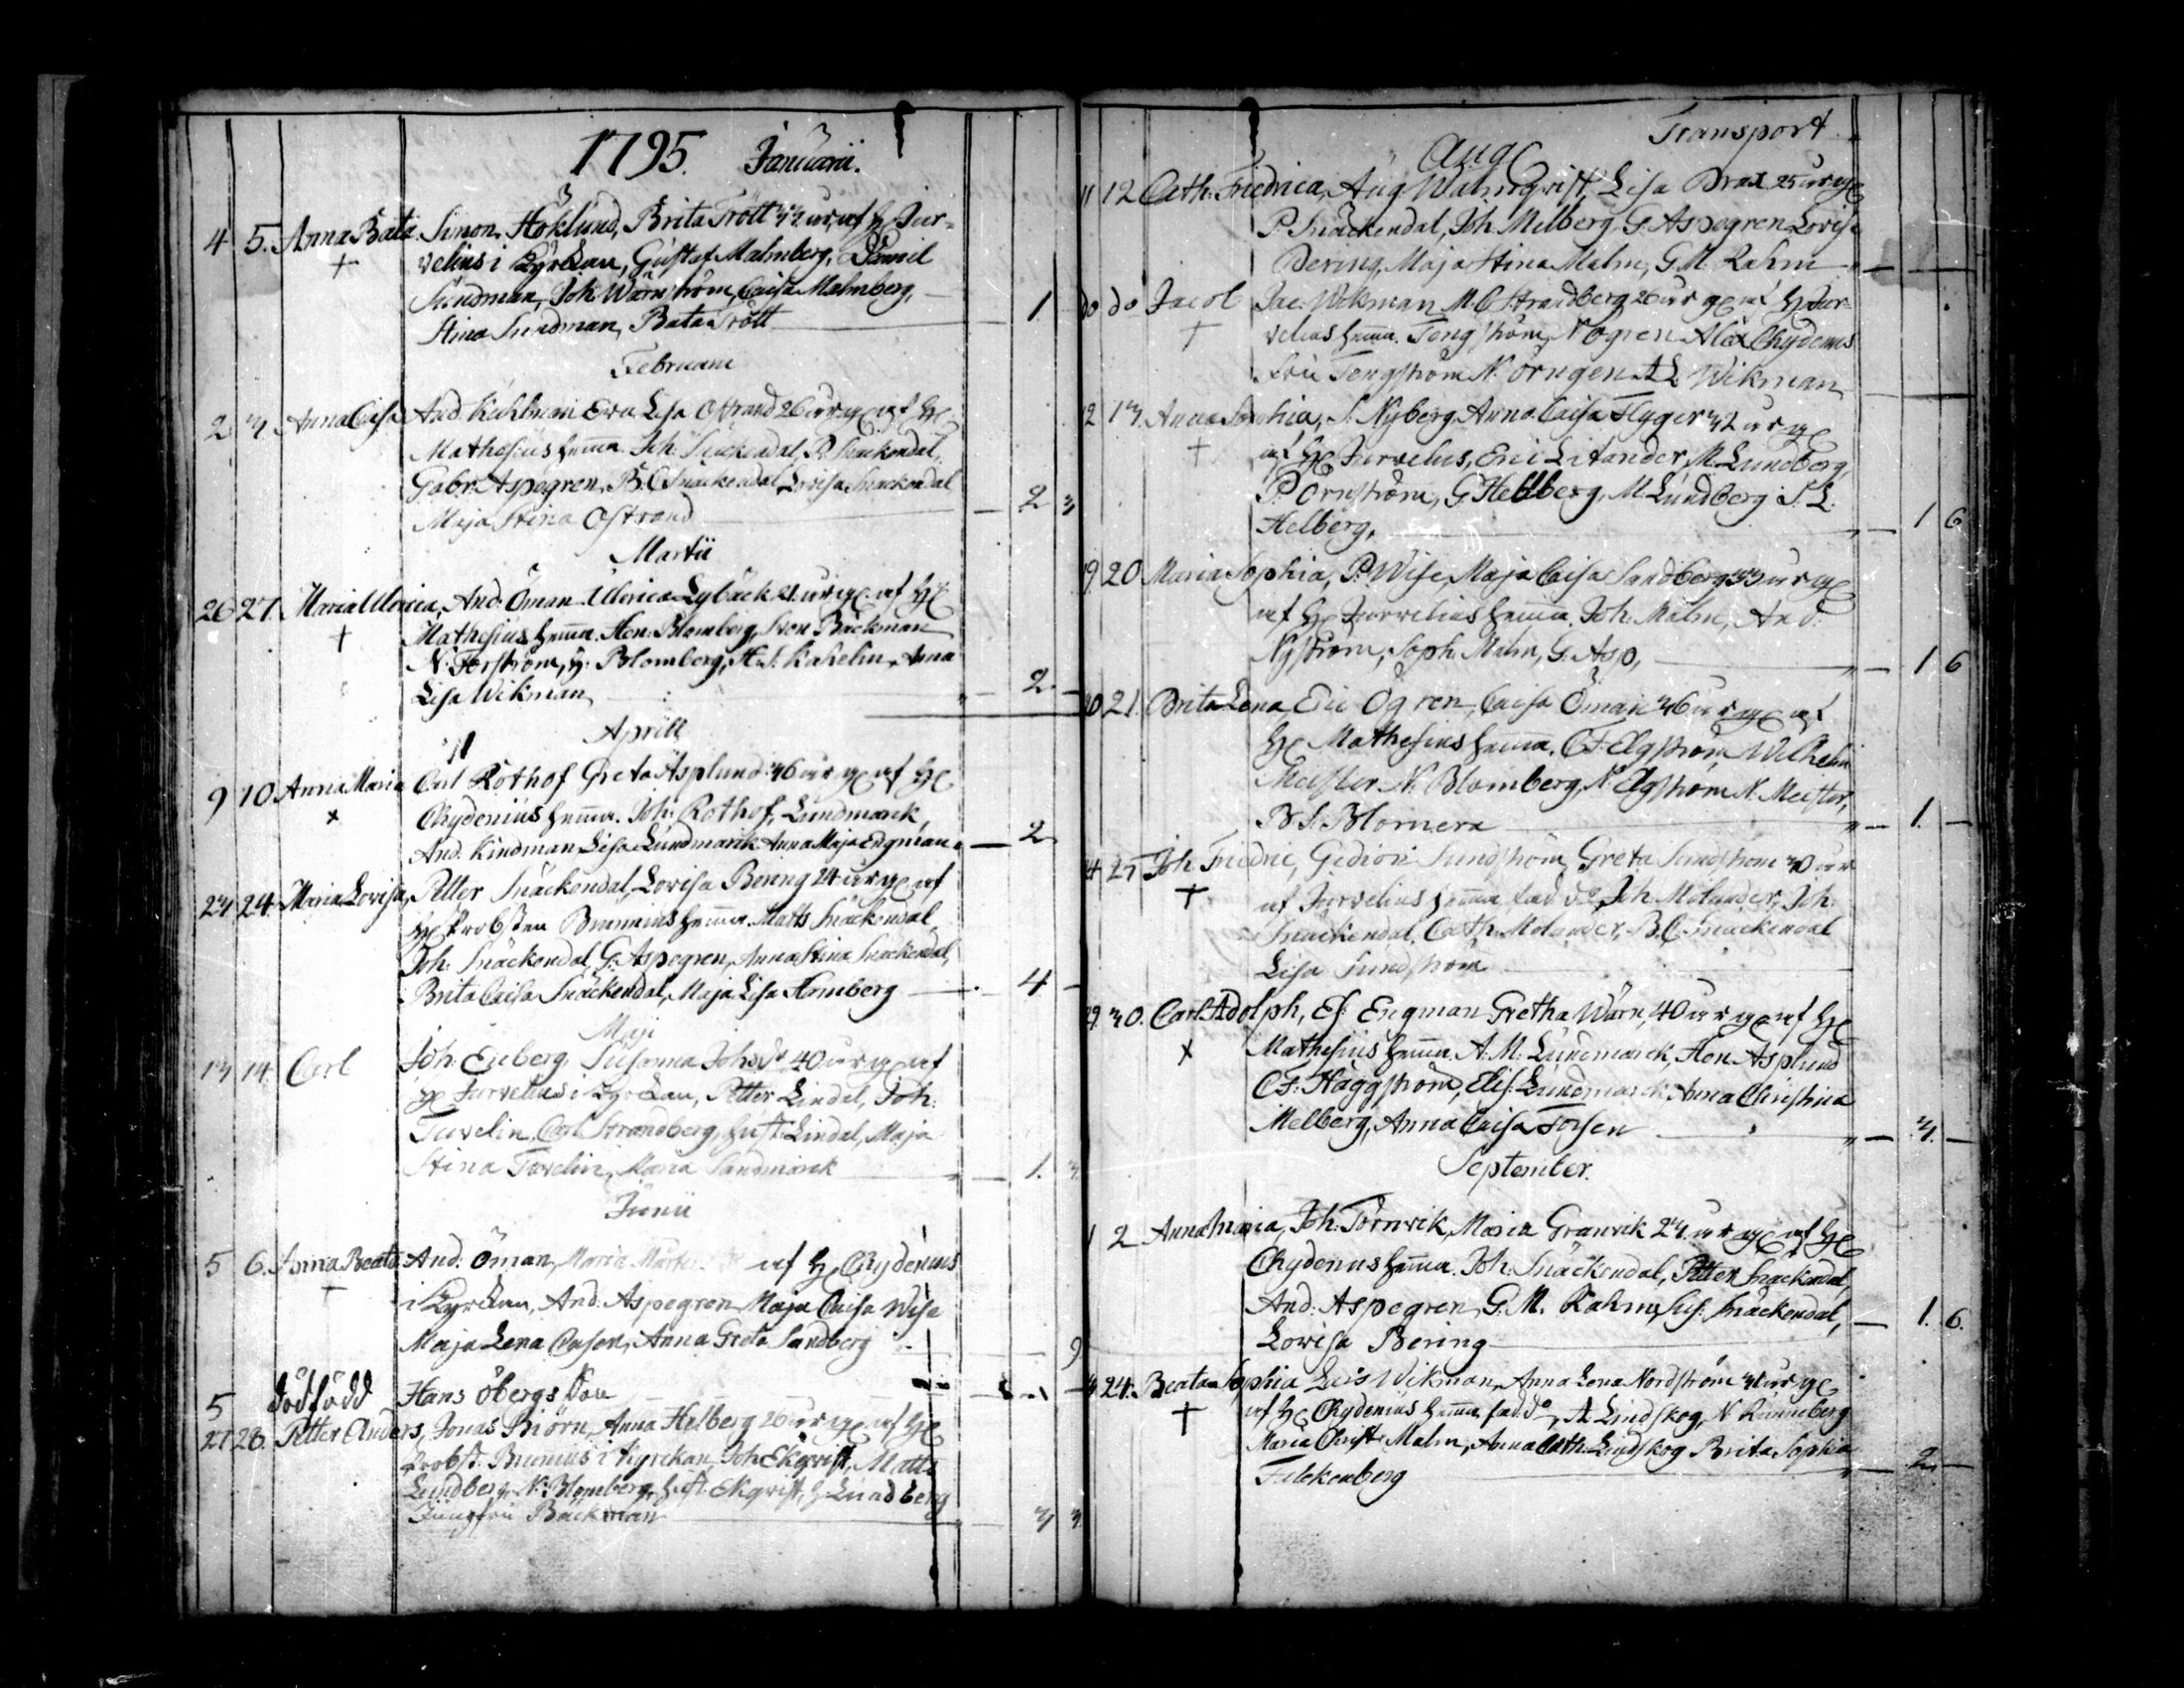 1795. Januarii.
4 5. Anna Bata Simon Höklund, Brita Trött 33 år, af H Jur-
velius i Kyrckan, Gustaf Malmberg, Daniel
Sundman, Joh Wärnström, Caisa Malmberg,
Stina Sundman, Bata Trött 1.
Februarii
2 3 Anna Caisa And. Eva Lisa Ostrand 26 år g af H
Mathesius hemma. Joh Snäckendal, P. Snäckendal,
Gabr. Aspegren, B. C. Snäckendal Lovisa Snäckendal
Maja Stina Ostrand 2 3
Martii
26 27. Maria Ulrica, And: Öman Ulrica Lybäck 21 år g af H
Mathesius hemma. Hen: Blomberg, Sven Bäckman
N. Forström, H. Blomberg, H. S. Kahelin, Anna
Lisa Wikman 2. —
Aprill
9 10 Anna Maria Carl Rothof Greta Asplund 36 år g af H
Chydenius hemma. Joh: Rothof, Lundmarck,
And. Kindman Lisa Lundmarck Anna Maja Engman — 2
23 24. Maria Lovisa, Petter Snäckendal, Lovisa Bering 24 år g af
H Probsten Brunnius hemma. Matts Snäckendal,
Joh: Snäckendal, G. Aspegren, Anna Stina Snäckendal,
Brita Caisa Snäckendal, Maja Lisa Holmberg 4 —
Maji
13 14. Carl Joh: Enberg, Susanna Johsdr 40 år g af
H Jurvelius i Kyrckan, Petter Lindal, Joh:
Tuvelin, Carl Strandberg, hust. Lindal, Maja
Stina Tuvelin, Maria Sandmarck 1. 3
Junii
5 6. Anna Beata And: Öman, Maria af H Chydenius
i Kyrckan, And: Aspegren Maja Caisa Wise
Maja Lena Anna Greta Sandberg 9
5 dödfödd Hans Öbergs Son
27 28. Petter Anders, Jonas Biörn, Anna Helberg 26 år g af H
Probst. Brunnius i Kyrckan, Joh Ekqvist, Matts
Lundberg, N. Blomberg, hust. Ekqvist, H Lundberg
Jungfru Bäckman 3 3
Transport
Aug
11 12 Cath: Friedrica, Aug Walmqvist, Lisa Brax 25 år g
P. Snäckendal, Joh. Melberg, G. Aspegren Lovisa
Bering, Maja Stina Malm, G. M. Rahm —
do do Jacob Jac. Wikman M. C Strandberg 26 år g af H Jur-
velius hemma. Tengström, N ogren Alex Chydenius
Tengström N. L. Wikman
12 13. Anna Sophia, S. Nyberg, Anna Caisa Flyger 32 år g
af H Jurvelius, Eric Litander, M. Lundberg,
P. Ornström, G Hellberg, M. Lundberg S. L.
Helberg, — 1 6
19 20 Maria Sophia, P. Wise, Maja Caisa Sandberg 33 år g
af H Jurvelius hemma. Joh: Malm, And:
Nyström, Soph. Malm, G. Asp, — 1 6
20 21. Brita Lena Eric Ögren, Caisa Öman 36 år g af
H Mathesius hemma. C. F. Elgström, Wilhelm
Meister N. Blomberg, N. Elgström N. Meister,
B. S. — 1. —
24 25 Joh Friedric, Gedion Sundström Greta Sundström 30 år
af Jurvelius hemma fadd: Joh Molander, Joh:
Snäckendal, Cath. Molander, B. C. Snäckendal
Lisa Sundström
29 30. Carl Adolph, Es Engman Gretha Wärn, 40 år g af H
Mathesius hemma. A. M. Lundmarck, Hen. Asplund
C. F. Häggström, Elis: Lundmarck Anna Christina
Melberg, Anna Caisa Forsen — 3. —
September.
1 2 Anna Maria, Joh: Törnvik, Maria Granvik 23 år g af H
Chydenius hemma. Joh: Snäckendal, Petter Snäckendal,
And: Aspegren, G. M. Rahm, Sus. Snäckendal,
Lovisa Bering — 1. 6.
24. Beata Sophia Lars Wikman, Anna Lena Nordström 31 år g
af H Chydenius hemma fadd: A Lindskog, N Runneberg
Maria Christ: Malm, Anna Cath. Lindskog Brita Sophia
Falckenberg — 2 —